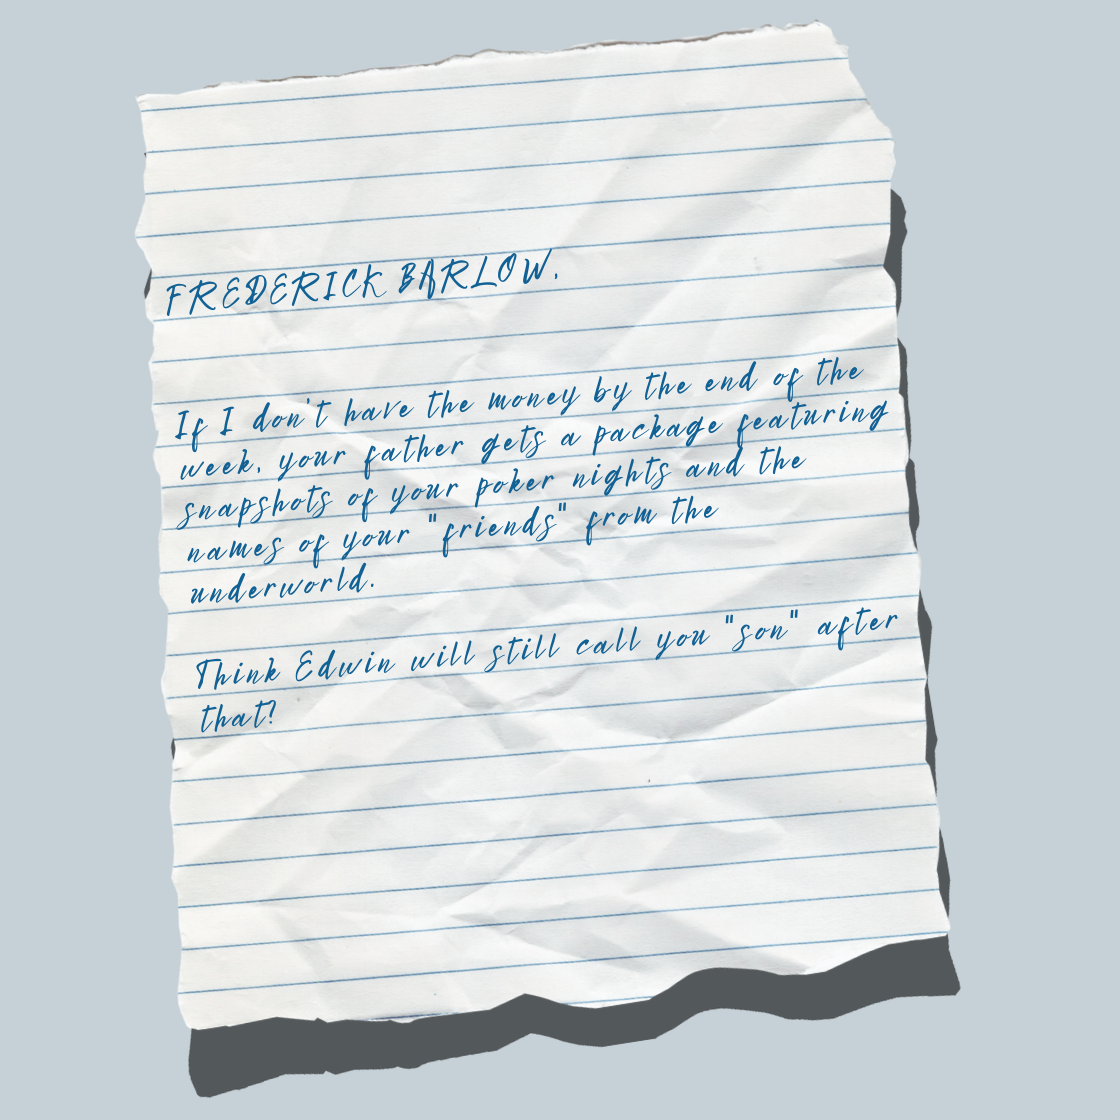 FREDERICK BARLOW,
If I don't have the money by the end of the
week, your father gets a package featuring
snapshots of your poker nights and the
names of your "friends" from the
underworld.
Think Edwin will still call you "son" after
that?